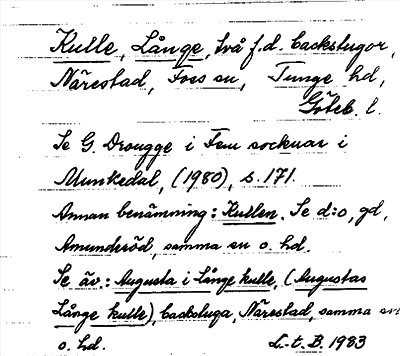 Kulle, Långe, två f.d. backstugor,
Närestad, Foss sn, Tunge hd,
Göteb. l.
Se G. Drougge i Fem socknar i
Munkedal, (1980), s. 171.
Annan benämning: Kullen. Se d:o, gd,
Amunderöd, samma sn o. hd.
Se äv.: Augusta i Långe kulle, (Augustas
Långe kulle), backstuga, Närestad, samma sn
o. hd. L-t. B. 1983